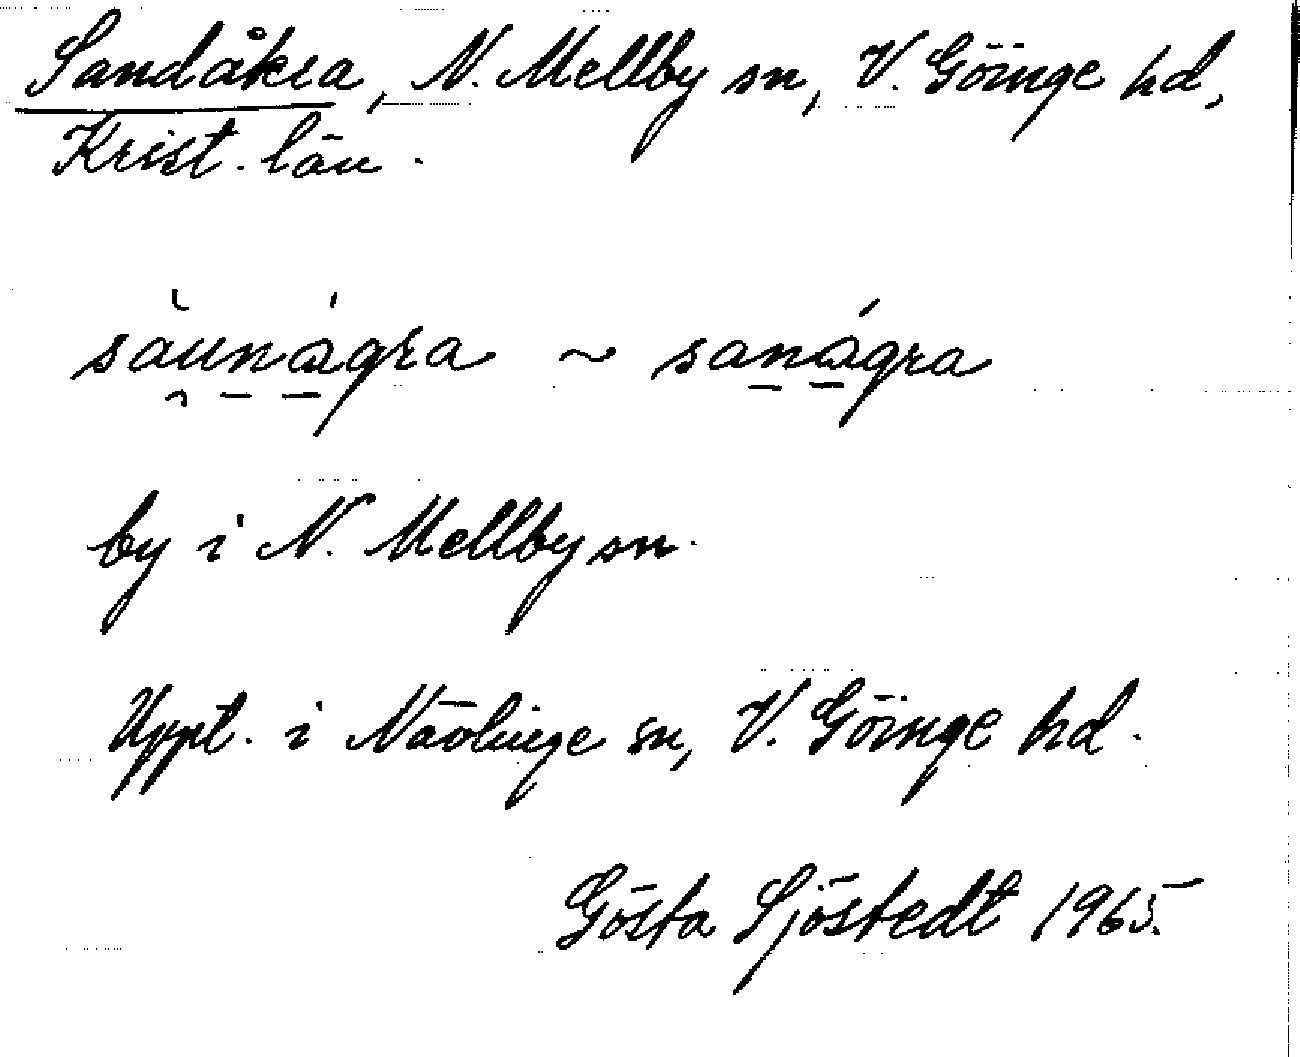 Sandåkra, N. Mellby sn, V. Göinge hd,
Krist. län.
saunagra ~ sanagra
by i N. Mellby sn.
Uppt. i Nävlinge sn, V. Göinge hd.
Gösta Sjöstedt 1965.